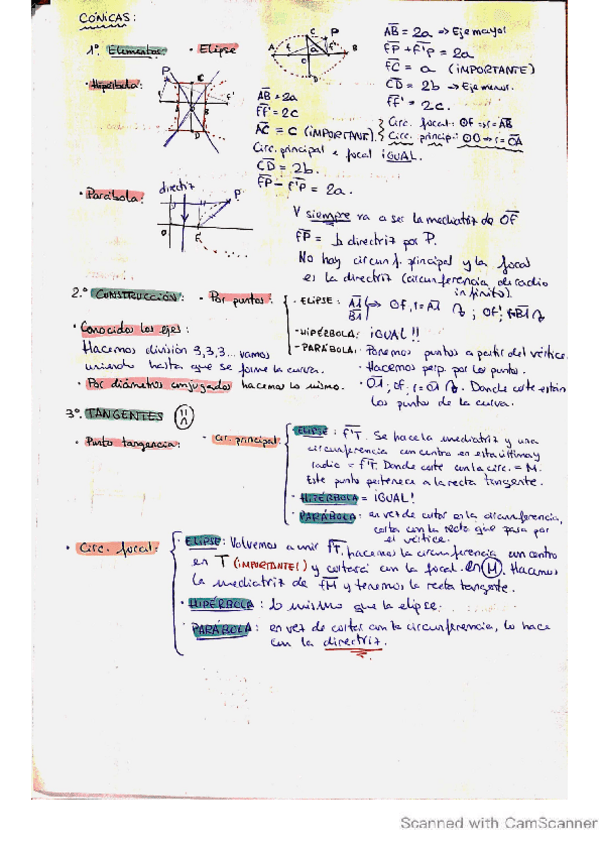 CÓNICAS:
1º Elementos: • Elipse
A F C P F' B D
AB = 2a => Eje mayor
FP + F'P = 2a
FC = a (IMPORTANTE)
CD = 2b -> Eje menor.
FF' = 2c.
Circ. focal: OF => r = AB
Circ. princip: OO => r = OA
• Hipérbola:
AB = 2a
FF' = 2c
AC = c (IMPORTANTE).
Circ. principal e focal iGUAL.
CD = 2b.
FP - F'P = 2a.
• Parábola:
directriz
P
F
V siempre va a ser la mediatriz de OF
FP = b directriz por P.
No hay circunf. principal y la focal
es la directriz (circunferencia de radio
infinito).
2.º CONSTRUCCIÓN: • Por puntos:
- ELIPSE:
- HIPÉRBOLA: iGUAL!!
- PARÁBOLA: Ponemos puntos a partir del vértice.
• Hacemos perp. por los puntos.
Donde corte están
los puntos de la curva.
• Conocidos los ejes:
Hacemos división 3,3,3... vamos
uniendo hasta que se forme la curva.
• Por diámetros conjugados hacemos lo mismo.
3º. TANGENTES
• Punto tangencia:
• Cir. principal
ELIPSE: F'T. Se hace la mediatriz y una
circunferencia con centro en esta última y
radio = F'T. Donde corte con la circ. = M.
Este punto pertenece a la recta tangente.
• HIPÉRBOLA = iGUAL!
• PARÁBOLA: en vez de cortar en la circunferencia,
corta con la recta que pasa por
el vértice.
• Circ. focal:
• ELIPSE: Volvemos a unir FT. hacemos la circunferencia con centro
en T (IMPORTANTE!) y cortará con la focal en H. Hacemos
la mediatriz de FH y tenemos la recta tangente.
• HIPÉRBOLA: Lo mismo que la elipse.
PARÁBOLA: en vez de cortar con la circunferencia, lo hace
con la directriz.
Scanned with CamScanner